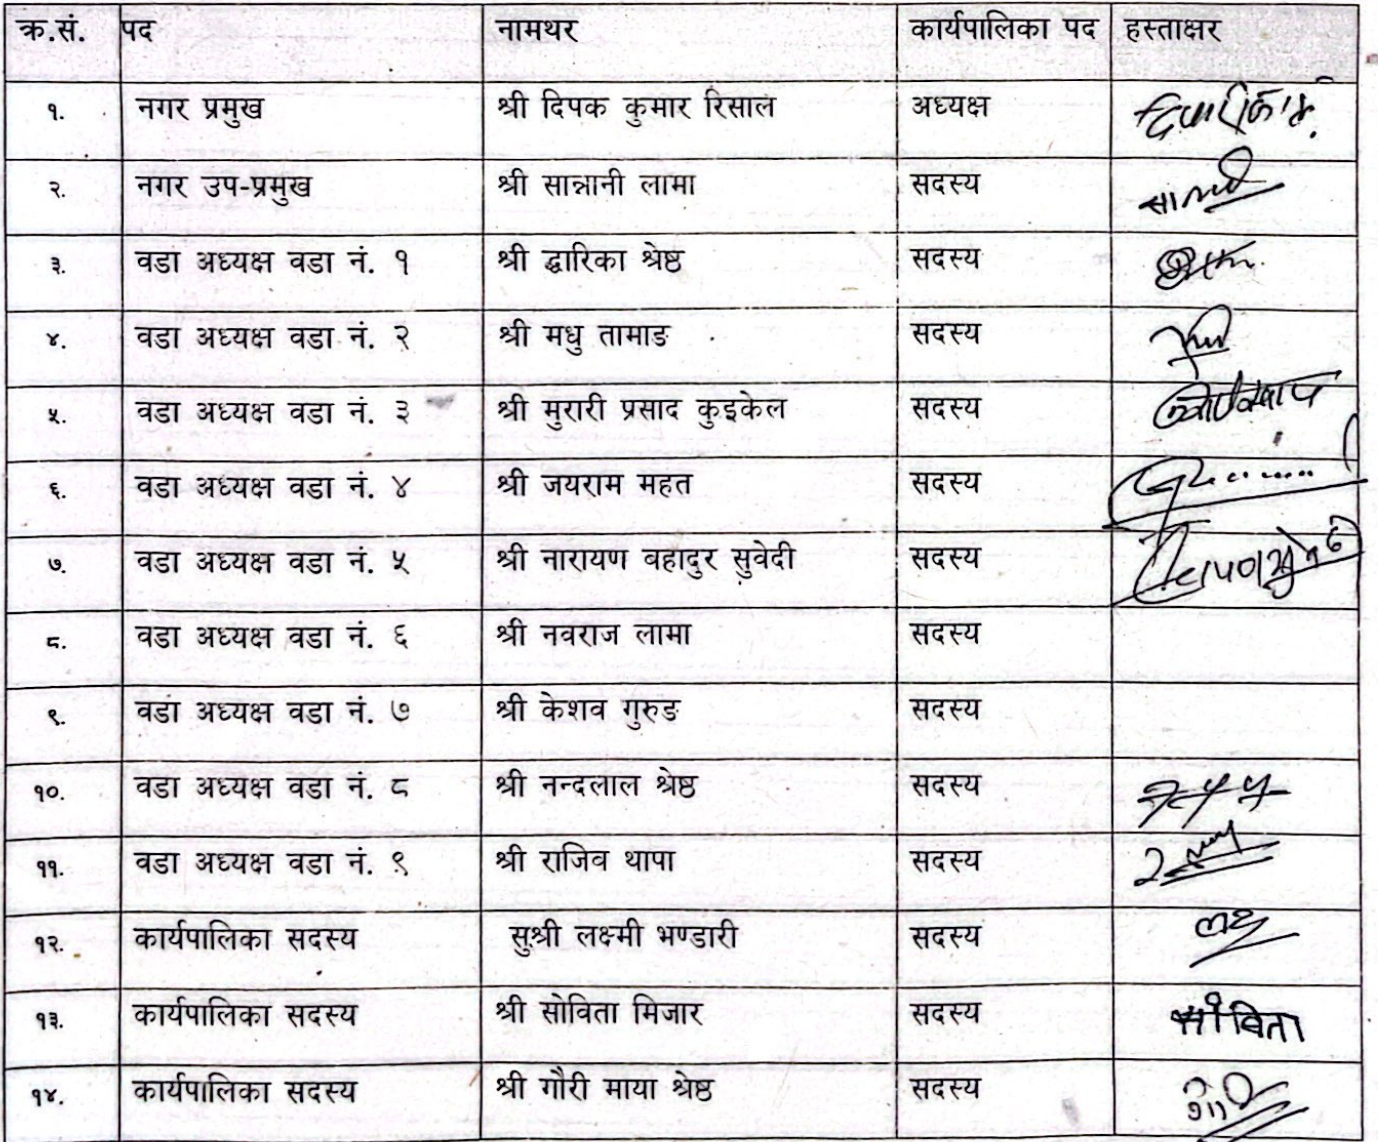 क्र.सं. पद नामथर कार्यपालिका पद हस्ताक्षर
१. नगर प्रमुख श्री दिपक कुमार रिसाल अध्यक्ष
२. नगर उप-प्रमुख श्री सान्नानी लामा सदस्य
३. वडा अध्यक्ष वडा नं. १ श्री द्धारिका श्रेष्ठ सदस्य
४. वडा अध्यक्ष वडा नं. २ श्री मधु तामाङ सदस्य
५. वडा अध्यक्ष वडा नं. ३ श्री मुरारी प्रसाद कुइकेल सदस्य
६. वडा अध्यक्ष वडा नं. ४ श्री जयराम महत सदस्य
७. वडा अध्यक्ष वडा नं. ५ श्री नारायण वहादुर सुवेदी सदस्य
८. वडा अध्यक्ष वडा नं. ६ श्री नवराज लामा सदस्य
९. वडा अध्यक्ष वडा नं. ७ श्री केशव गुरुङ सदस्य
१०. वडा अध्यक्ष वडा नं. ८ श्री नन्दलाल श्रेष्ठ सदस्य
११. वडा अध्यक्ष वडा नं. ९ श्री राजिव थापा सदस्य
१२. कार्यपालिका सदस्य सुश्री लक्ष्मी भण्डारी सदस्य
१३. कार्यपालिका सदस्य श्री सोविता मिजार सदस्य सोविता
१४. कार्यपालिका सदस्य श्री गौरी माया श्रेष्ठ सदस्य